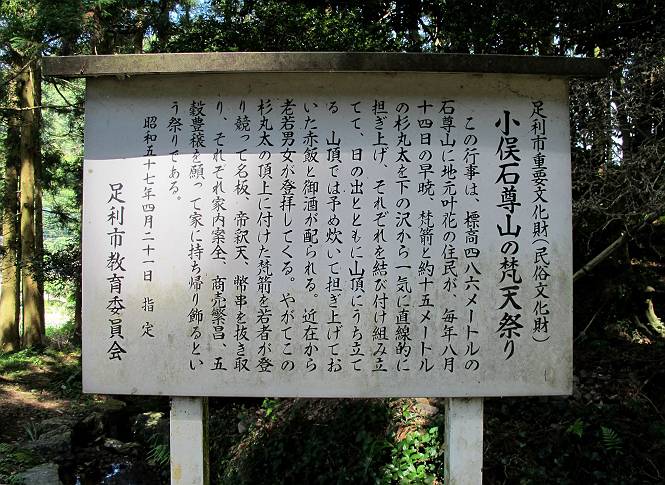 足利市重要文化財（民俗文化財）
小俣石尊山の梵天祭り
この行事は、標高四八六メートルの
石尊山に地元叶花の住民が、毎年八月
十四日の早暁、梵箭と約十五メートル
の杉丸太を下の沢から一気に直線的に
担ぎ上げ、それぞれを結び付け組み立
てて、日の出とともに山頂にうち立て
る　山頂では予め炊いて担ぎ上げてお
いた赤飯と御酒が配られる。近在から
老若男女が登拝してくる。やがてこの
杉丸太の頂上に付けた梵箭を若者が登
り競って名板、帝釈天、幣串を抜き取
り、それぞれ家内安全、商売繁昌　五
穀豊穣を願って家に持ち帰り飾るとい
う祭りである。
昭和五十七年四月二十一日　指定
足利市教育委員会